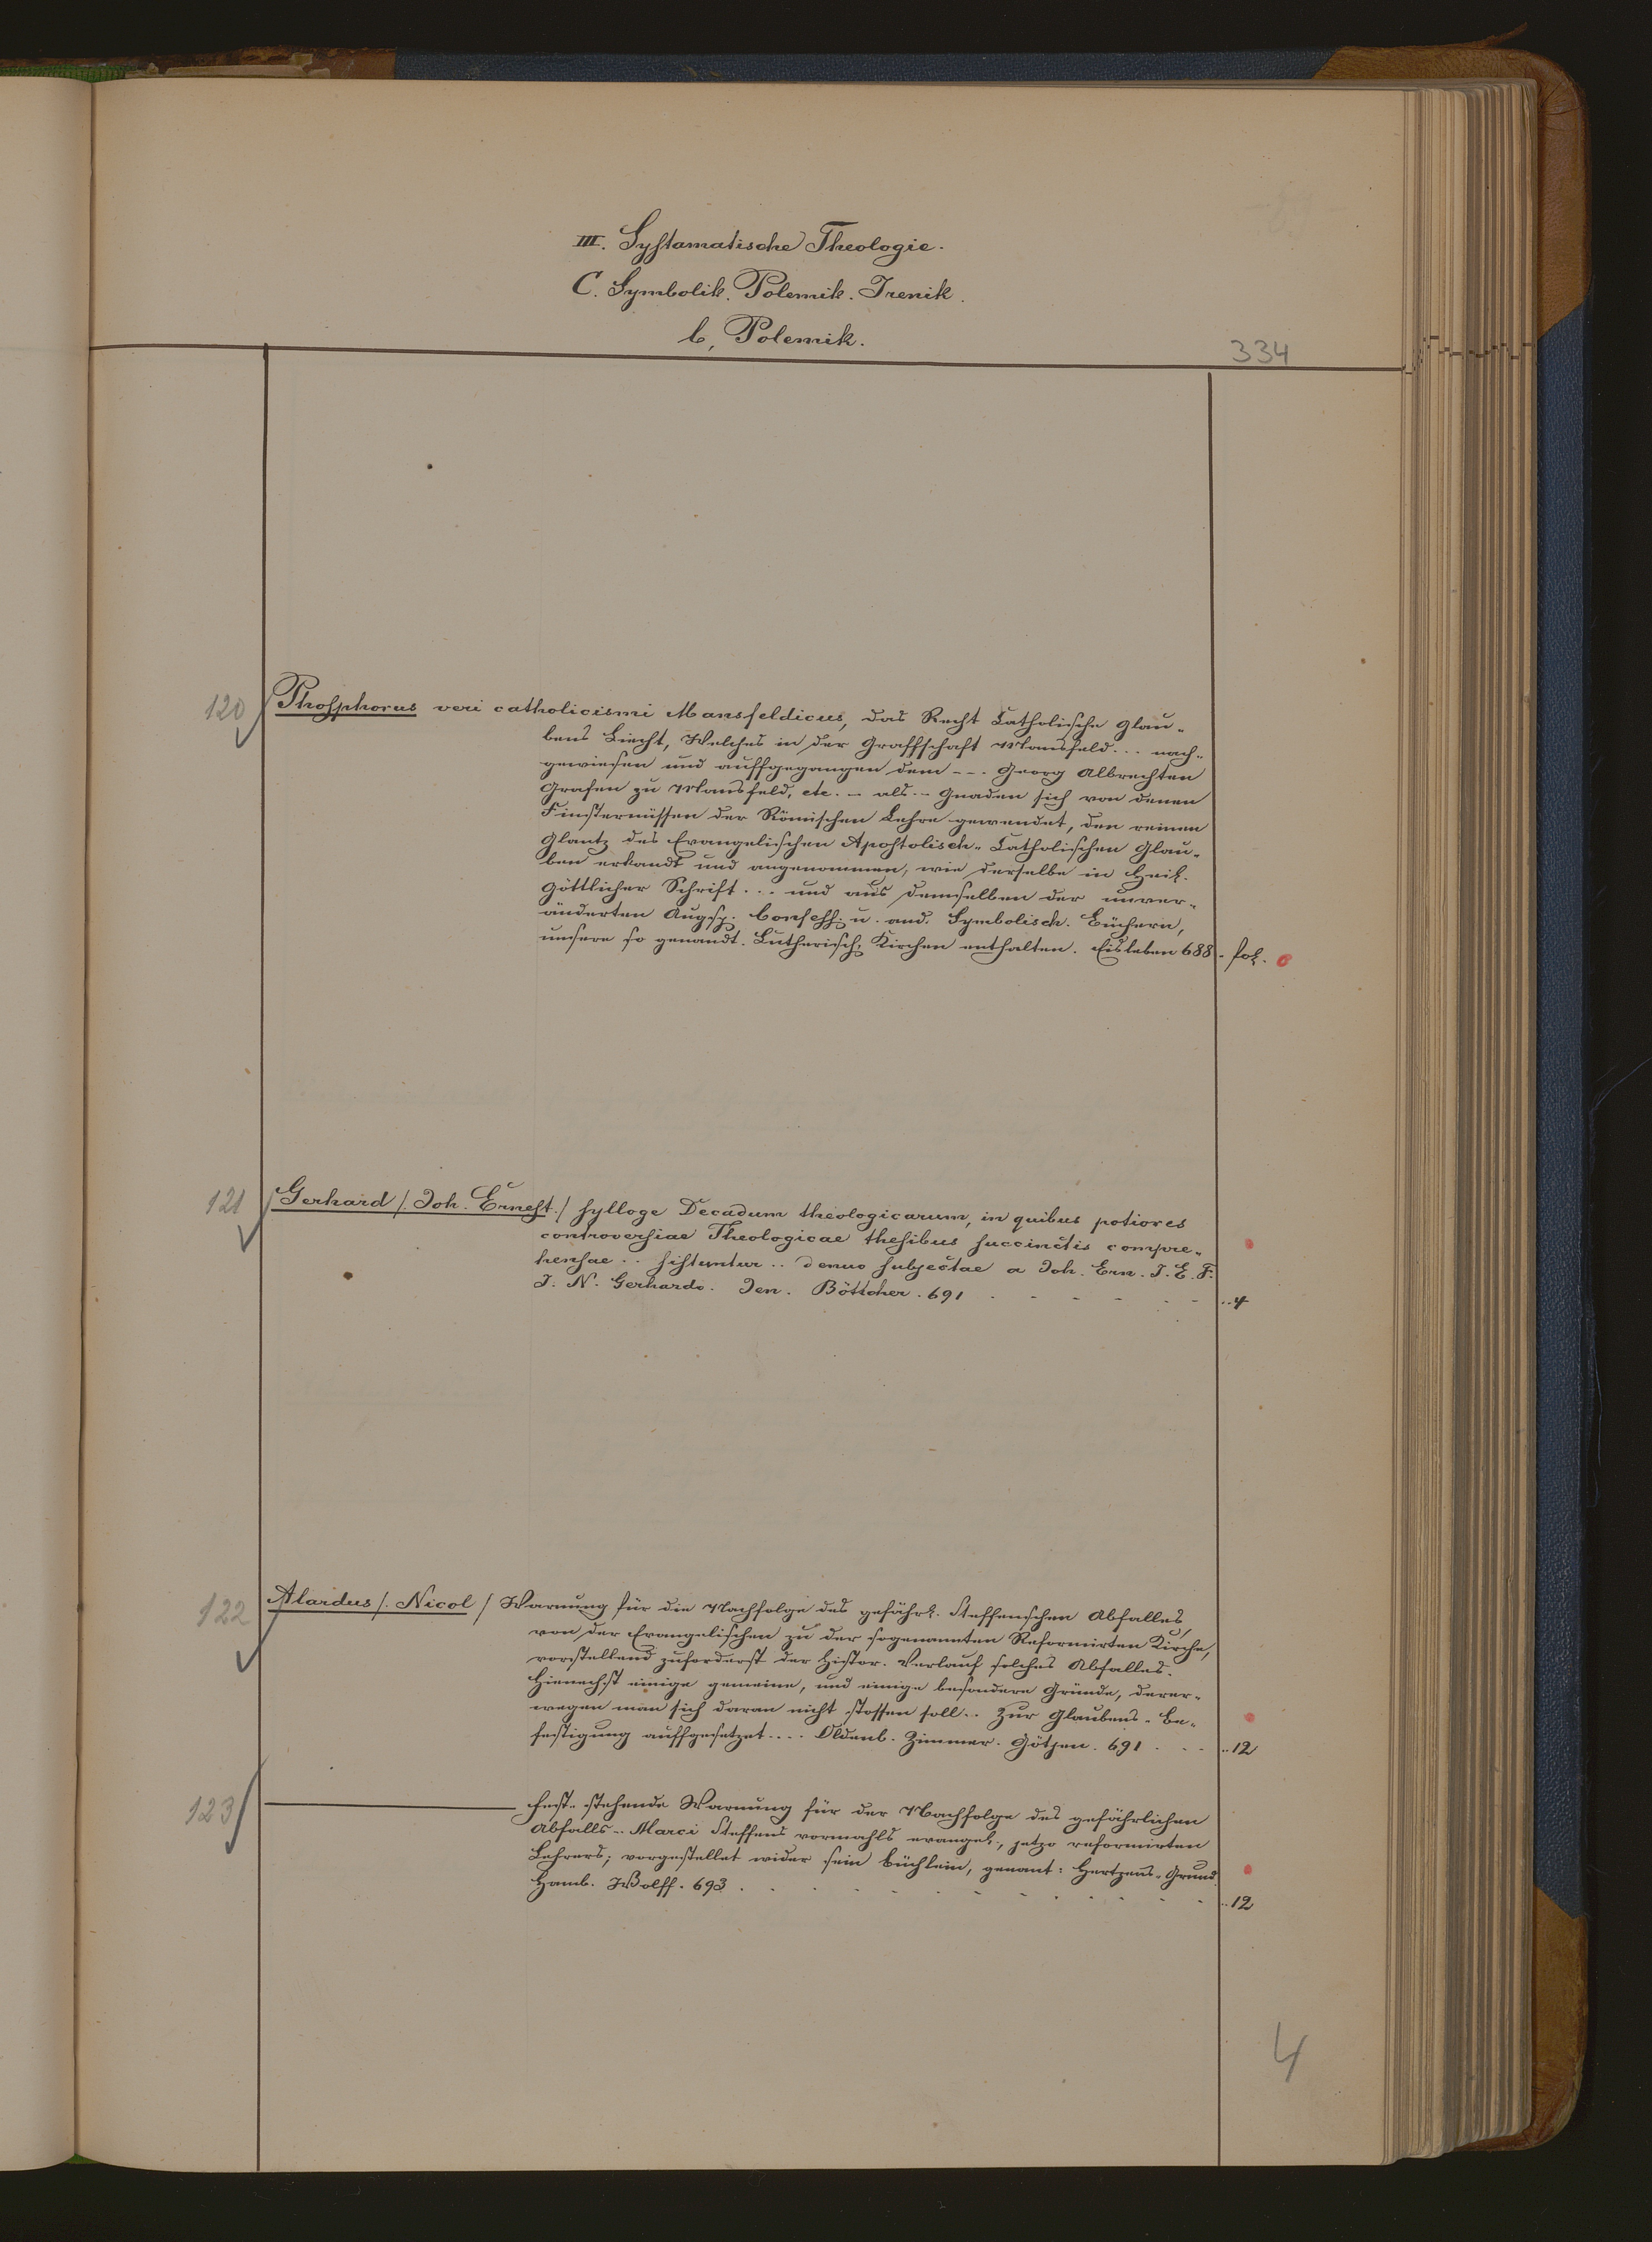 III. Systamatische Theologie.
C. Symbolik. Polemik. Irenik.
b, Polemik.
334
120 Phosphorus veri catholicismi Mansfeldicus, das Recht Catholische Glau-
bens Liecht, Welches in der Graffschaft Mansfeld... nach-
gewiesen und auffgegangen dem --. Georg Albrechten
Grafen zu Mansfeld, etc. - als -- Gnaden sich von denen
Finsternüssen der Römischen Lehre gewendet, den reinen
Glantz des Evangelischen Apostolisch-Catholischen Glau-
ben erkandt und angenommen, wie derselbe in Heil.
göttlicher Schrift... und aus demselben der unver-
änderten Augsp. Confess. u. and. Symbolisch. Büchern,
unsere so genandt. Lutherisch. Kirchen enthalten. Eisleben 688 - fol.
121 Gerhard /. Joh. Ernest./ sylloge Decadum theologicarum, in quibus potiores
controversiae Theologicae thesibus succinctis compre-
hensae .. sistuntur .. denuo subjectae a Joh. Ern. J. E. F.
J. N. Gerhardo. Jen. Böttcher. 691 . - - - - - ..4
122 Alardus /. Nicol / Warnung für die Nachfolge des gefährl. Steffenschen Abfalles,
von der Evangelischen zu der sogenannten Reformirten Kirche,
vorstellend zuforderst der Histor. Verlauf solches Abfalles.
Hienechst einige gemeine, und einige besondere Gründe, derer-
wegen man sich daran nicht stossen soll .. Zur Glaubens-Be-
festigung auffgesetzet.... Oldenb. Zimmer. Götzen. 691 . - - ..12
123 Fest-stehende Warnung für der Nachfolge des gefährlichen
Abfalls -- Marci Steffens vormahls evangel., jetzo reformirten
Lehrers; vorgestellet wider sein Büchlein, genant: Hertzens-Grund.
Hamb. Wolff. 693 . . . . . . . . . . . ..12
4